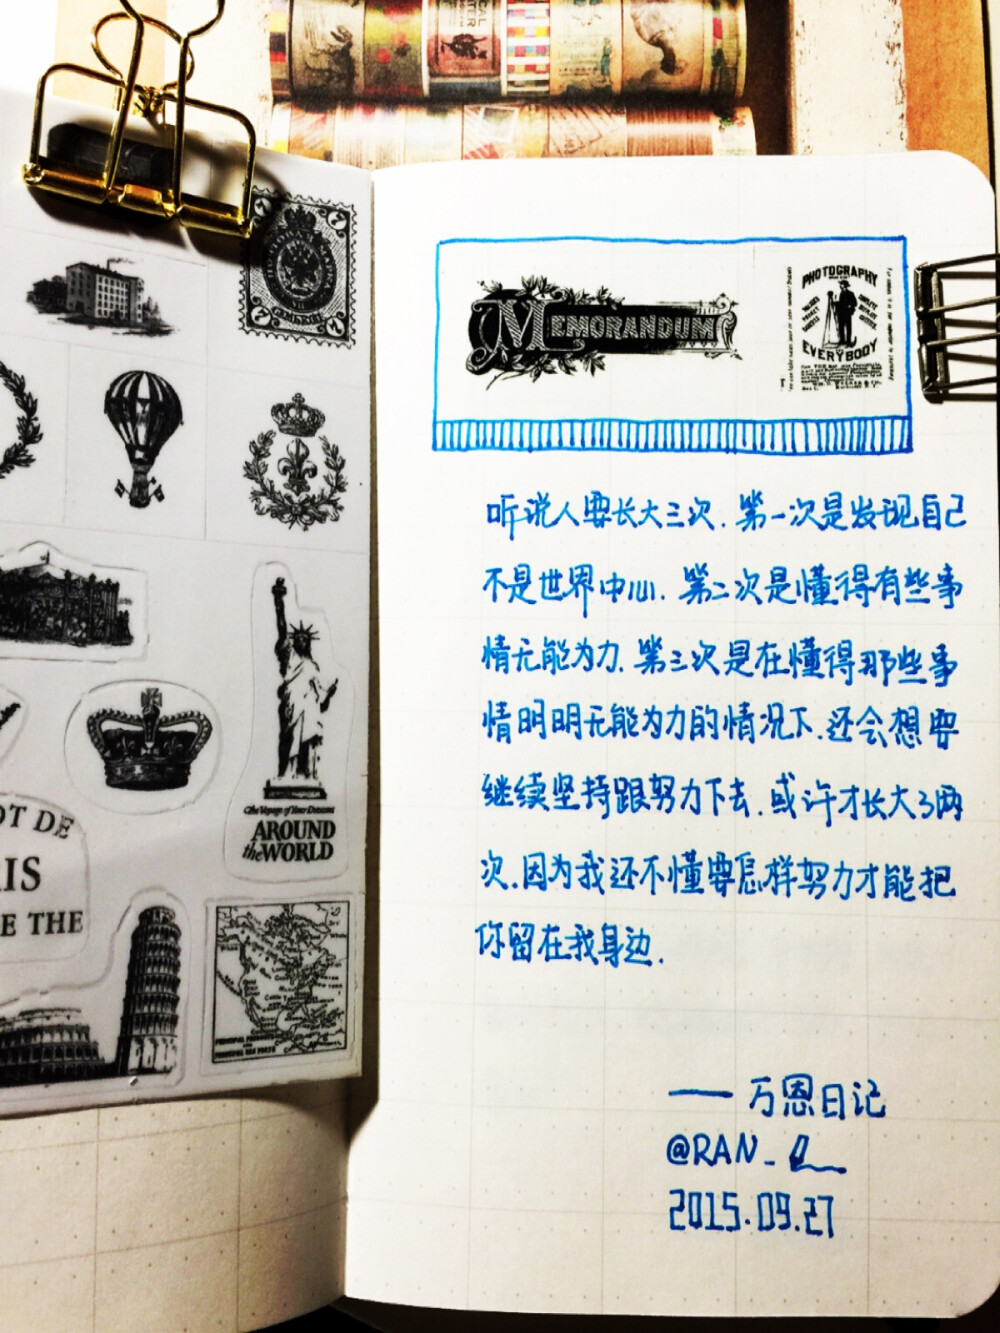 7 7
7 7
OT DE
IS
E THE
The Voyage of Your Dreams
AROUND
the WORLD
PRINCIPAL PRODUCTS
AND
PRINCIPAL SEA PORTS
MEMORANDUM
PHOTOGRAPHY
EVERYBODY
听说人要长大三次.第一次是发现自己
不是世界中心.第二次是懂得有些事
情无能为力.第三次是在懂得那些事
情明明无能为力的情况下.还会想要
继续坚持跟努力下去.或许才长大了两
次.因为我还不懂要怎样努力才能把
你留在我身边.
——万恩日记
@RAN_
2015.09.27